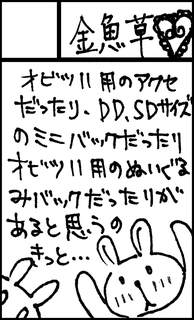 金魚草
オビツ11用のアクセ
だったり、DD、SDサイズ
のミニバックだったり
オビツ11用のぬいぐる
みバックだったりが
あると思うの
きっと…